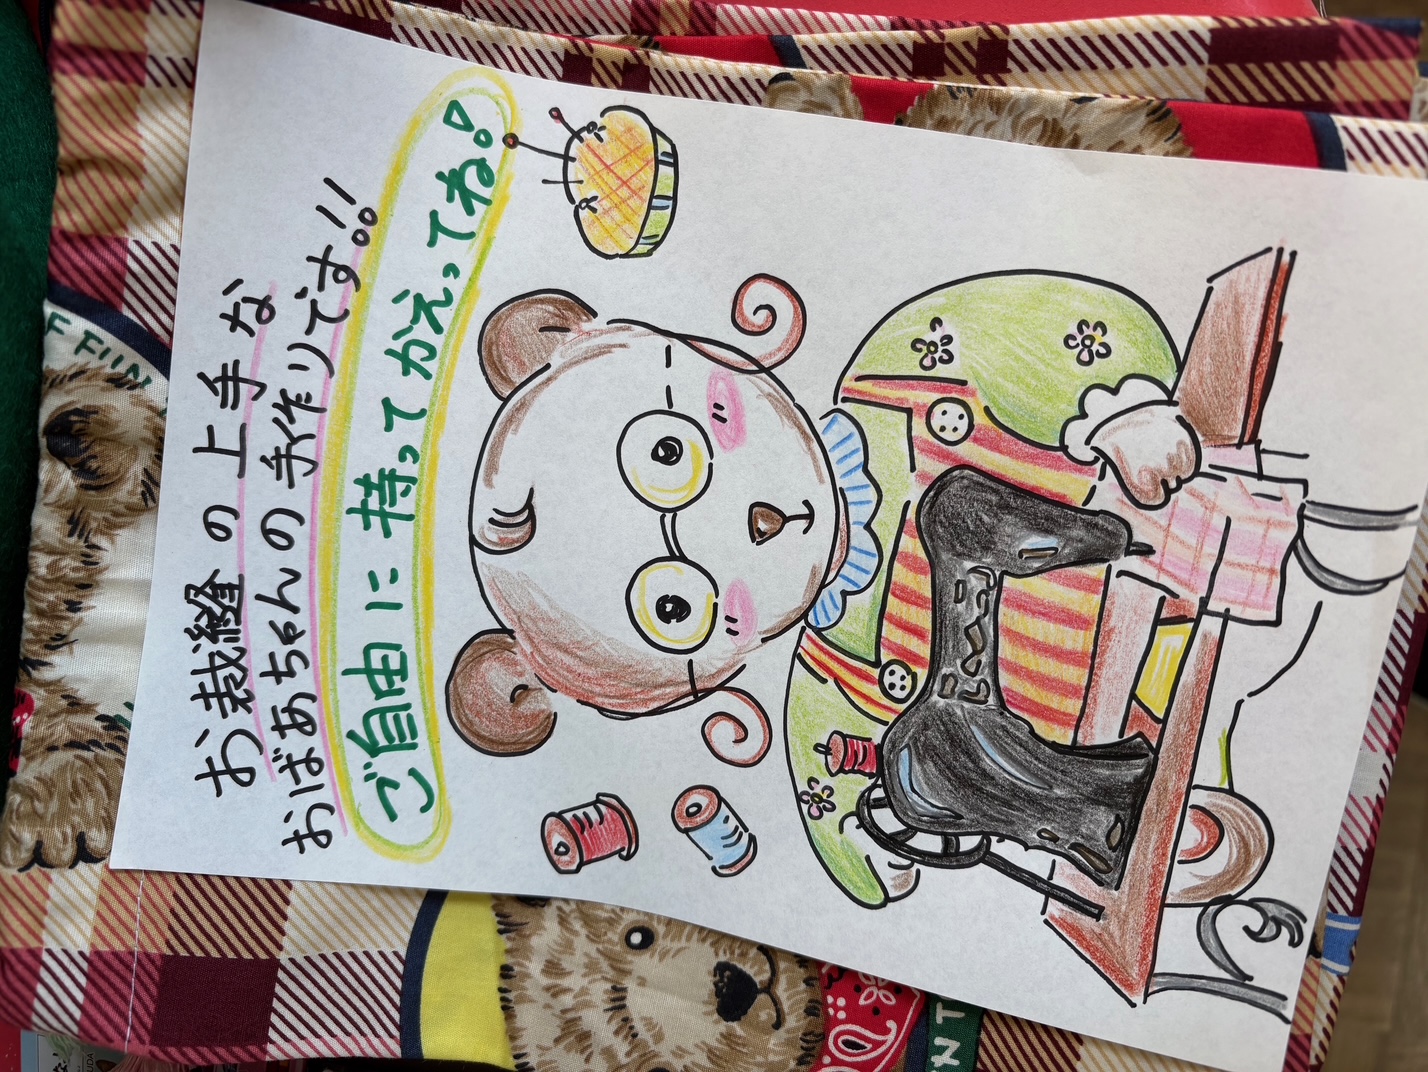 お裁縫の上手な
おばあちゃんの手作りです!!
ご自由に持ってかえってね!
FUN